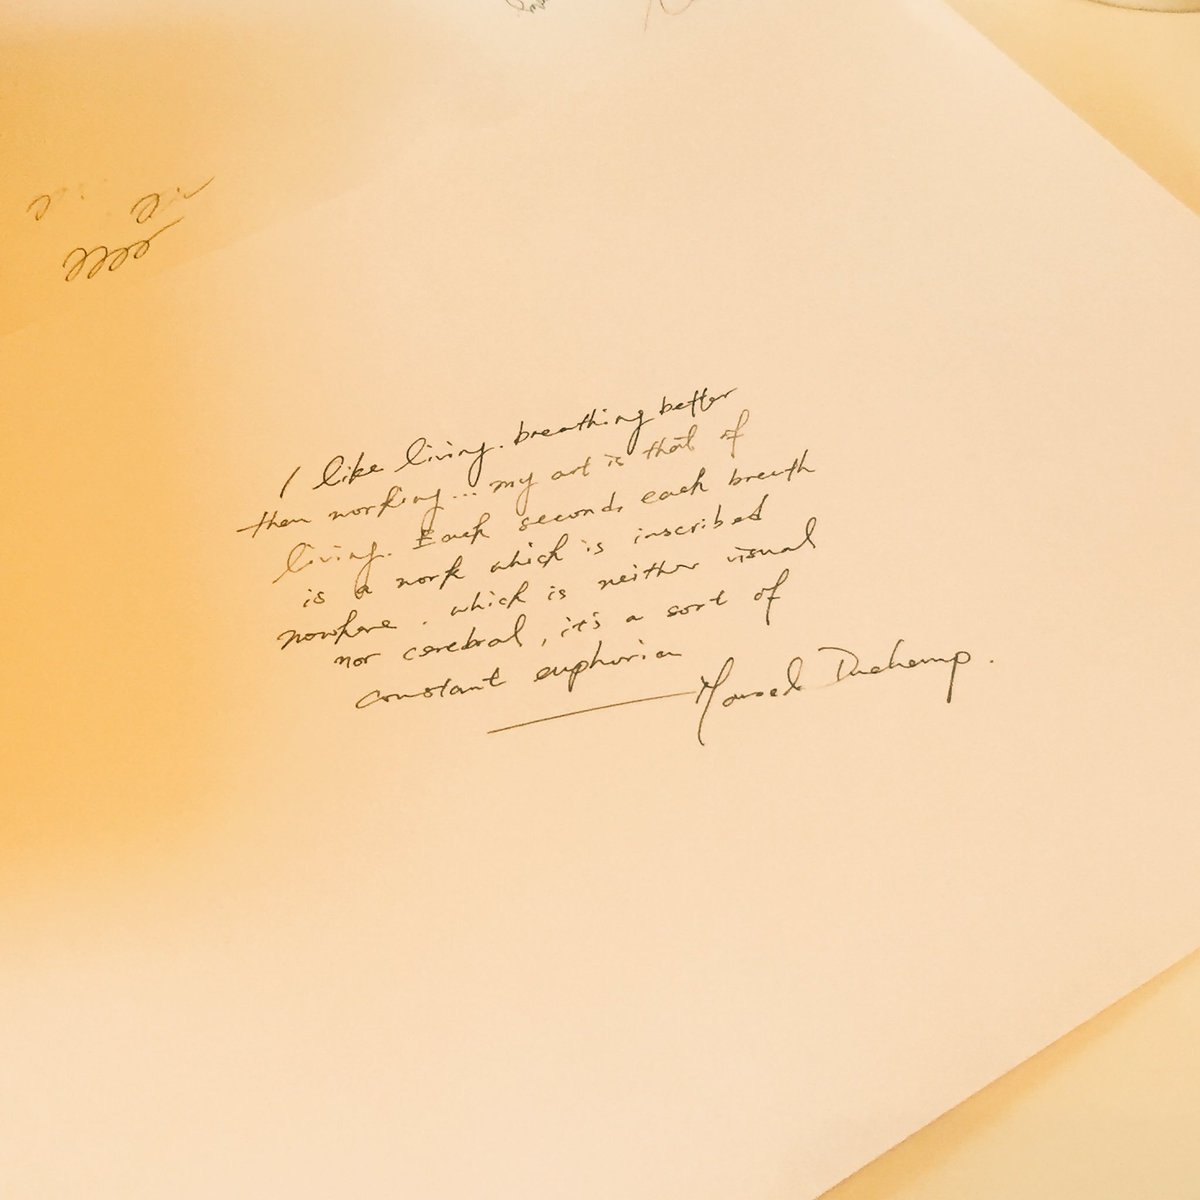 I like living. breathing better
then working... my art is that of
living. Each second, each breath
is a work which is inscribed
nowhere. which is neither visual
nor cerebral, it's a sort of
constant euphoria
Marcel Duchamp.